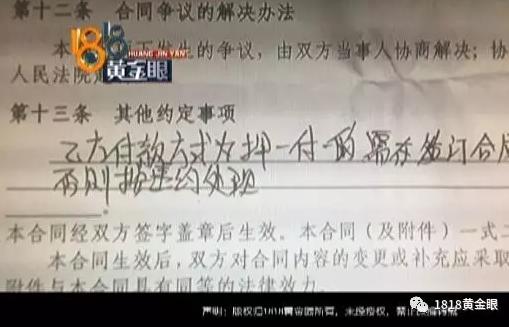 第十二条 合同争议的解决办法
本 生的争议，由双方当事人协商解决；协
1818
HUANG JIN YAN
黄金眼
人民法院
第十三条 其他约定事项
乙方付款方式为押一付一的需在签订合同
否则按违约处理
本合同经双方签字盖章后生效。本合同（及附件）一式二
本合同生效后，双方对合同内容的变更或补充应采取
附件与本合同具有同等的法律效力。
声明：版权归1818黄金眼所有，未经授权，禁止
1818黄金眼